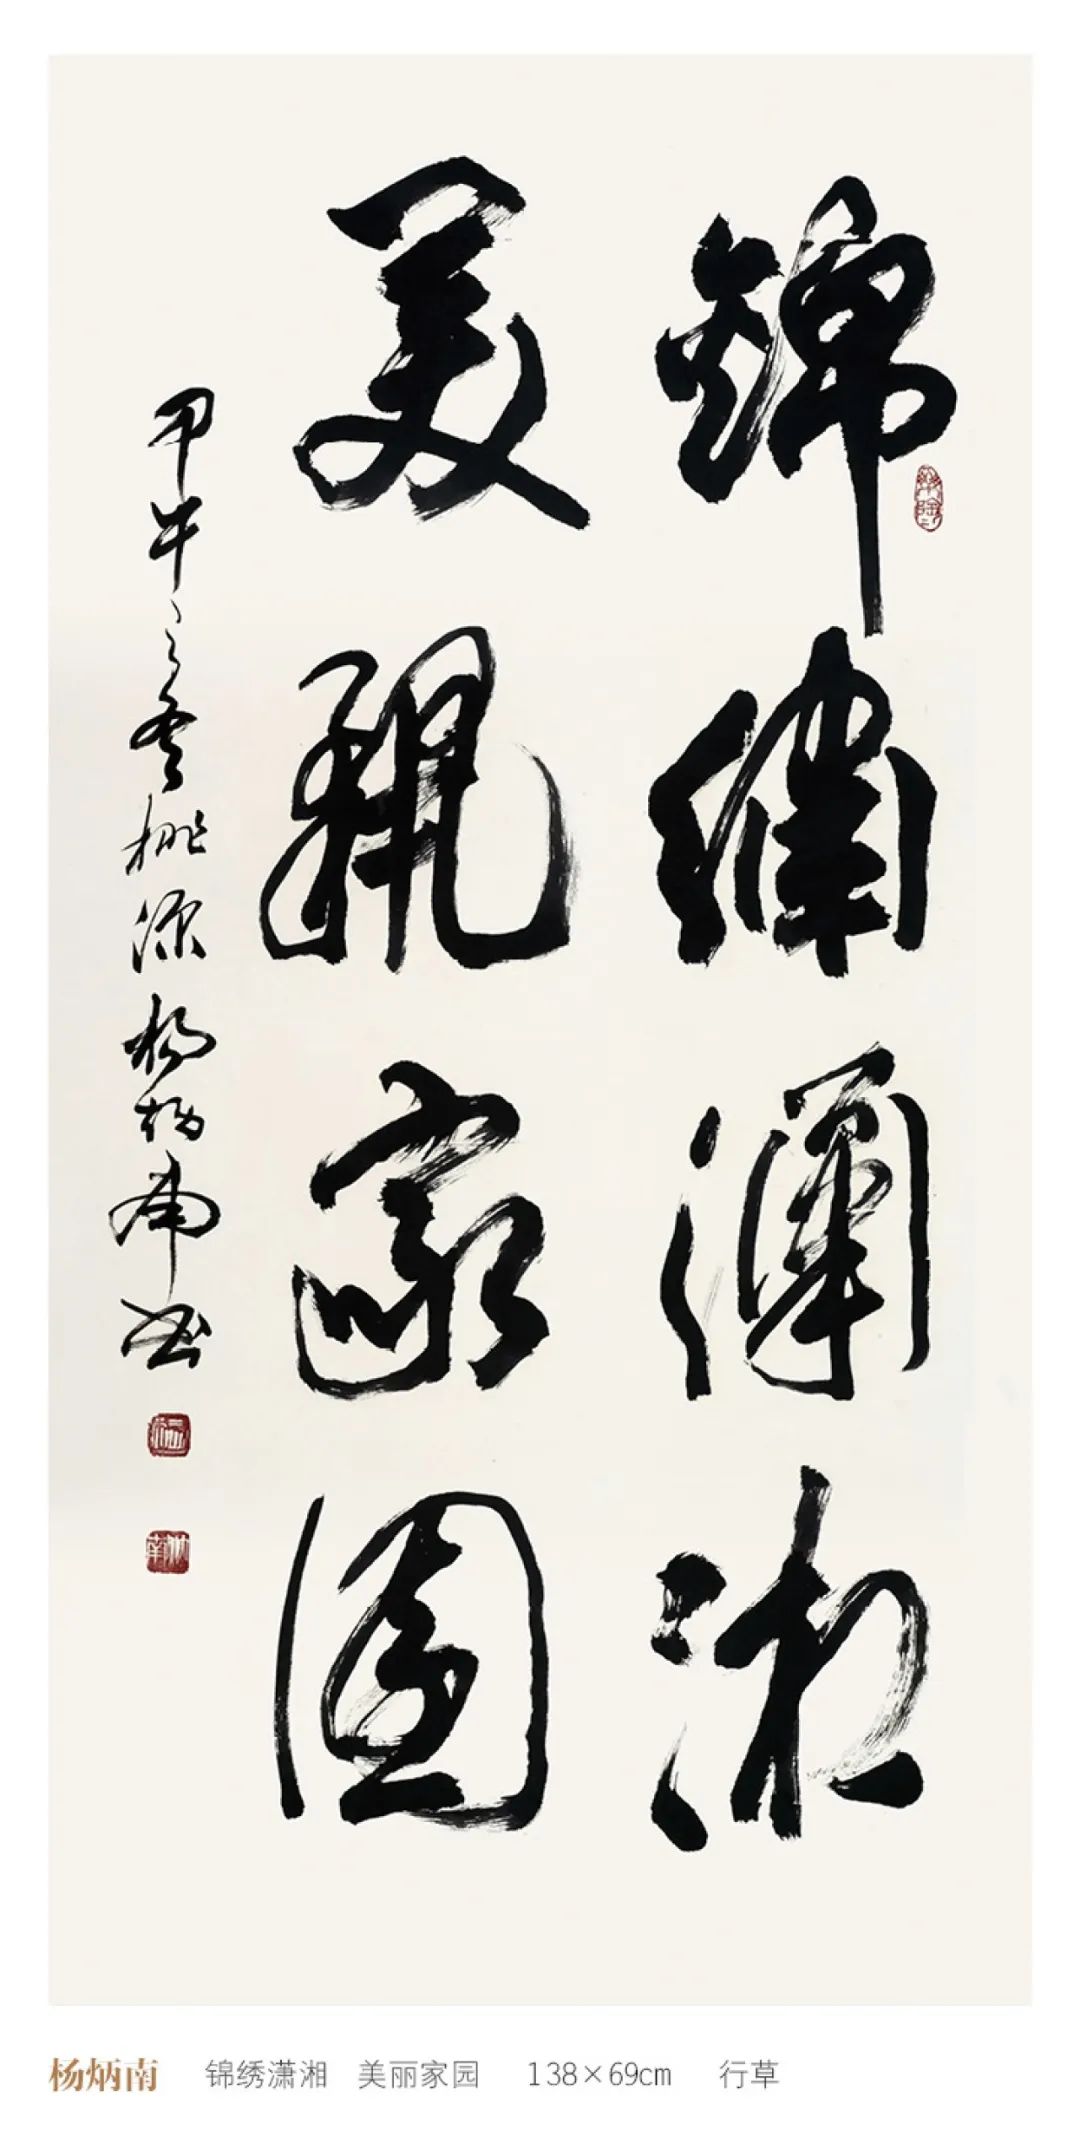 錦繡瀟湘
美麗家園
甲午之冬桃源楊炳南书
杨炳南 锦绣潇湘 美丽家园 138×69cm 行草